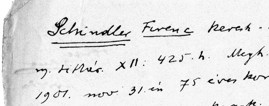 Schindler Ferenc keresk.
XII. 425. h. Megh.
1901. nov 31. én 75 éves kor